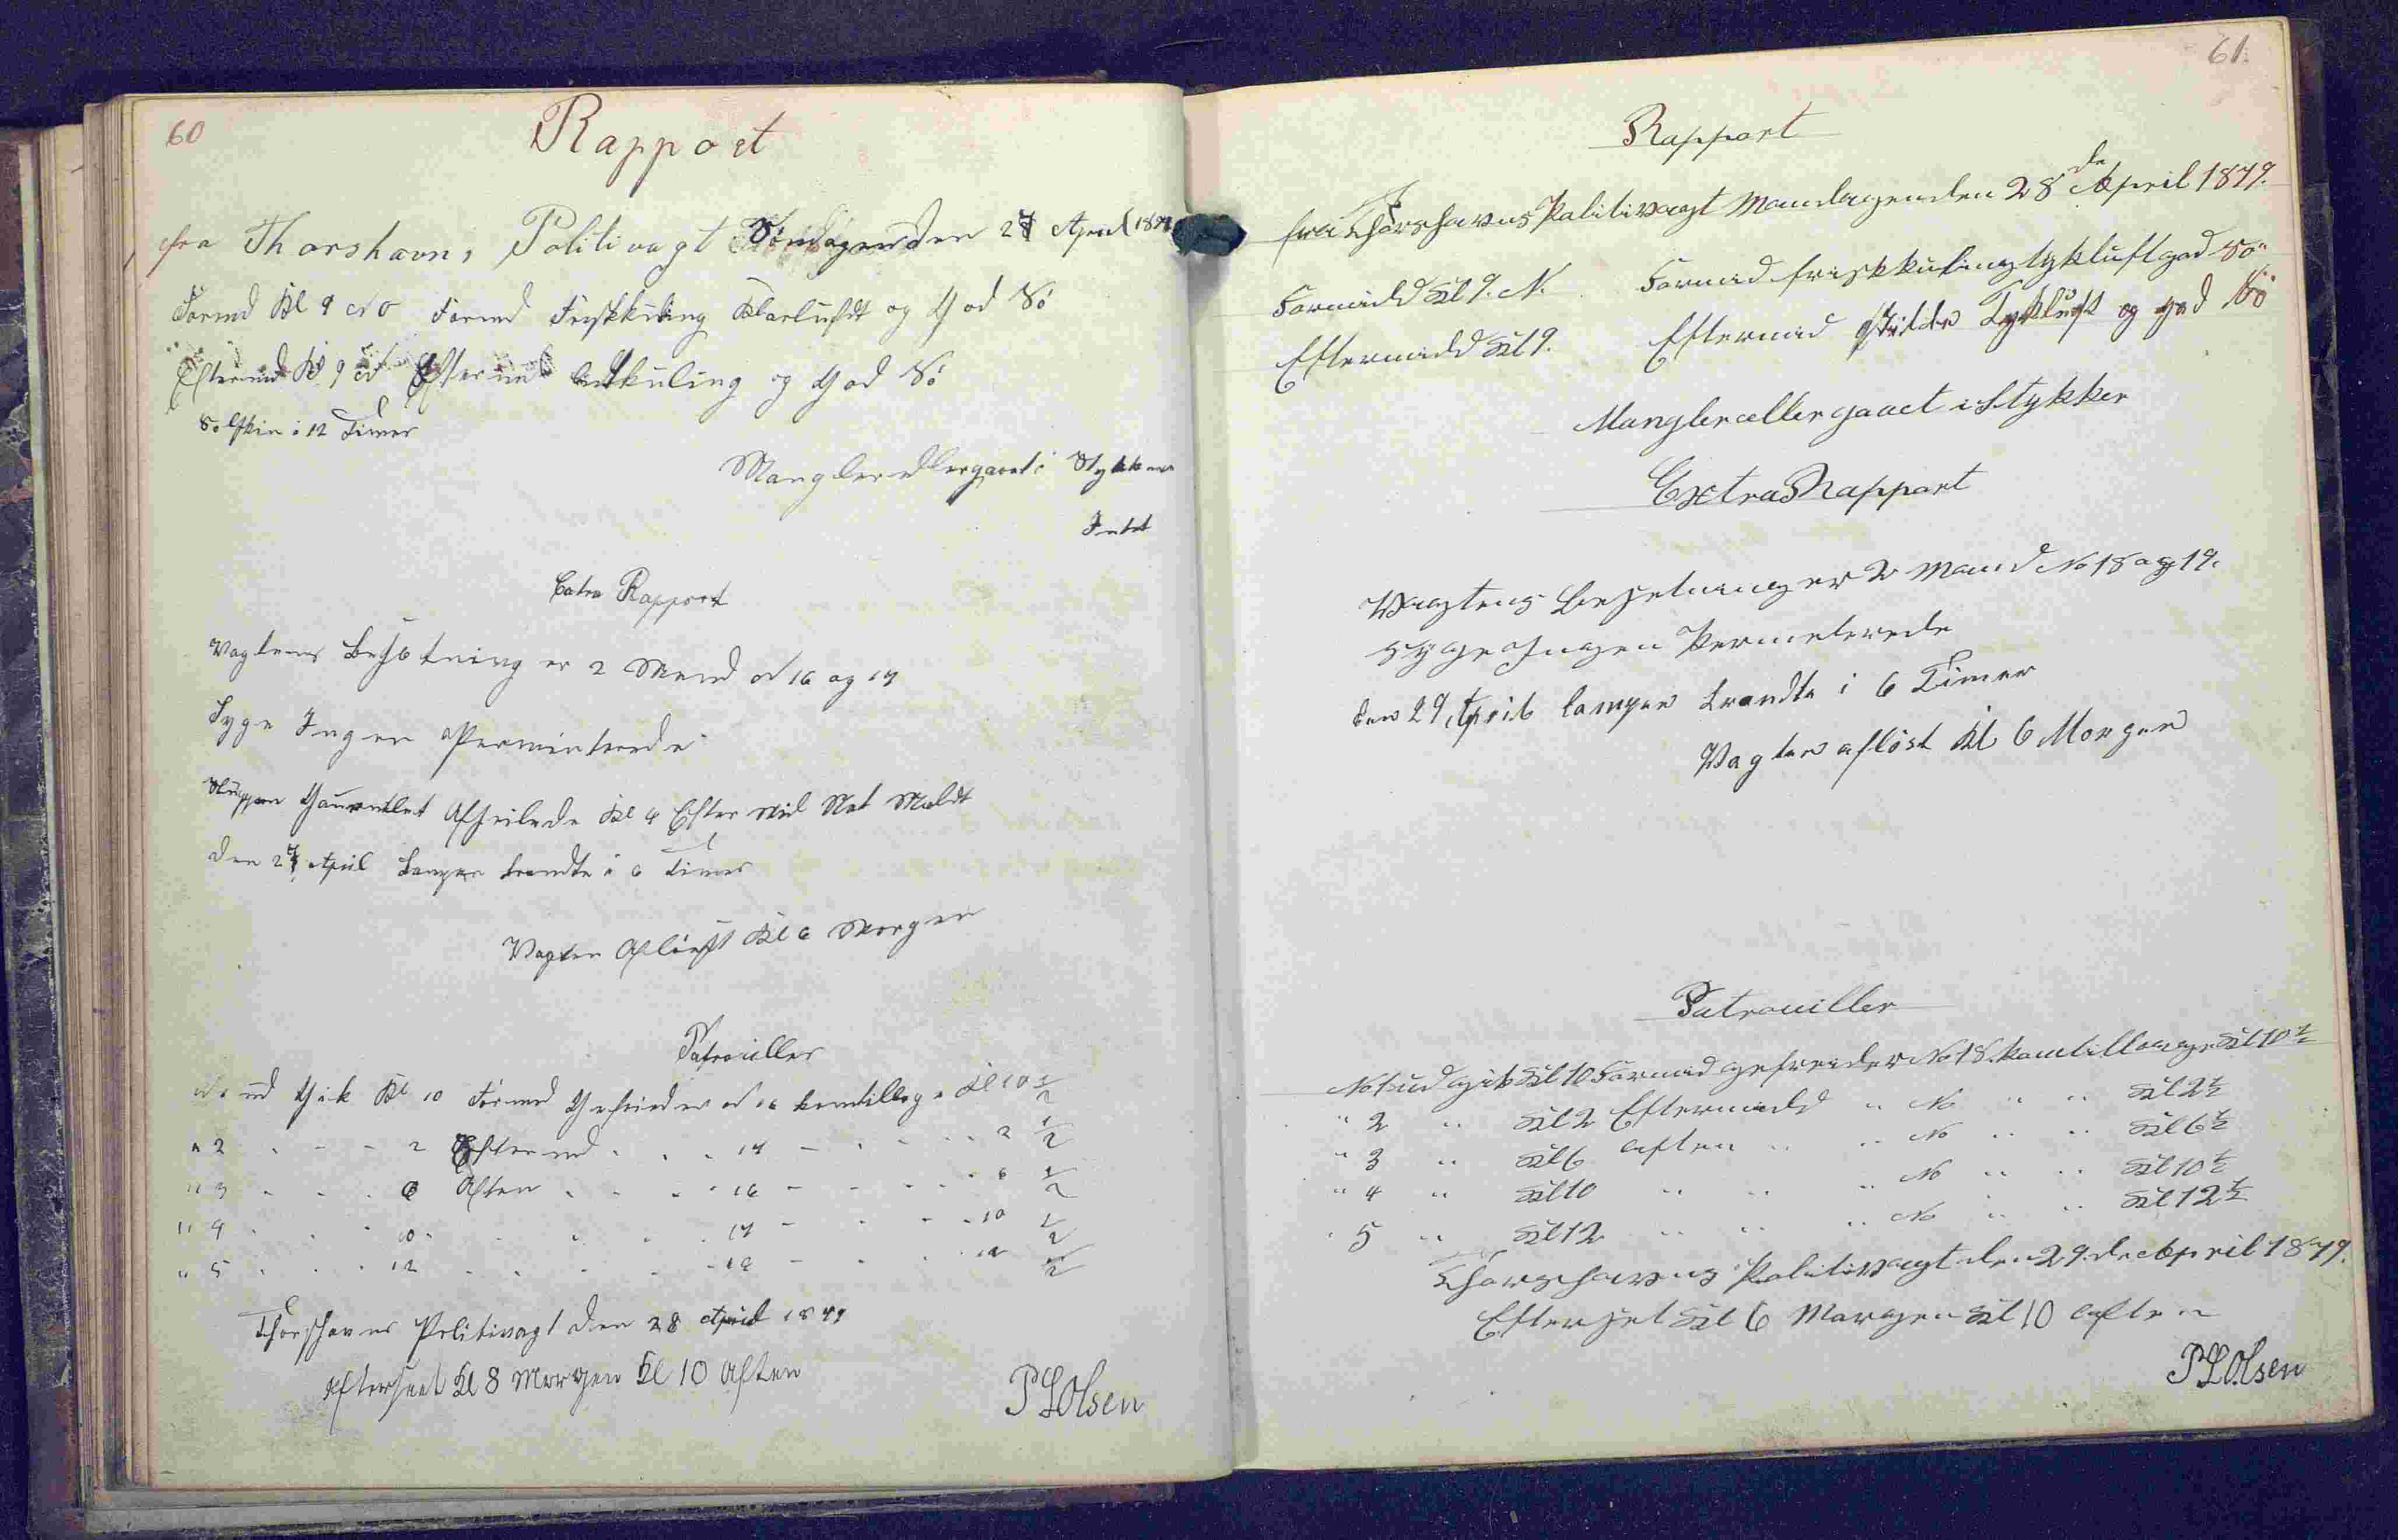 60
Rapport
fra Thorshavns Politivagt Söndagen den 27 April 1879
Formd Kl 9 NO Formd Friskkuling Klarluft og God Sö
Eftermd Kl 9 Eftermd kuling og God Sö
Solskin i 12 Timer
Mangler eller gaaet i Stykker
Intet
Extra Rapport
Vagtens Besetning er 2 Mand No 16 og 17
Syge Ingen Permiterede
Sluppen Gauntlet Afseilede Kl 4 Efter Mid
den 27 April Lampen brændte i 6 Timer
Vagten Aflöst Kl 6 Morgen
Patrouiller
No 1 ud Gik Kl 10 Formd Gefreider No 16 kom tilbage Kl 10 1/2
" 2 " - - 2 Eftermd " " " 17 - " " " 2 1/2
" 3 " " " 6 Aften " " " 16 - - " " 6 1/2
" 4 " " 10 " " " " 17 - " - " 10 1/2
" 5 " " " 12 " " " " 16 - " " " 12 1/2
Thorshavns Politivagt den 28 April 1879
Efterseet Kl 8 Morgen Kl 10 Aften
PLOlsen
61.
Rapport
fra Thorshavns Politivagt Mandagen den 28 de April 1879.
Formidd Kl 9. N. Formid frisk kuling tykluft god Sö
Eftermidd Kl 9. Eftermid Stille Tykluft og god Sö
Mangler eller gaaet i Stykker
Extra Rapport
Vagtens Besetning er 2 Mand No 18 og 19.
Syge Ingen Permeterede
den 29 April lampen brændte i 6 Timer
Vagten aflöst Kl 6 Morgen
Patrouiller
No 1 ud gik Kl 10 Formid gefreider No 18. kom tilbage Kl 10 1/2
" 2 " Kl 2 Eftermidd " No " " Kl 2 1/2
" 3 " Kl 6 aften " " No " " Kl 6 1/2
" 4 " Kl 10 " " " No " " Kl 10 1/2
" 5 " Kl 12 " " " No " " Kl 12 1/2
Thorshavns Politivagt den 29. de April 1879.
Efterset Kl 6 Morgen Kl 10 aften
PLOlsen